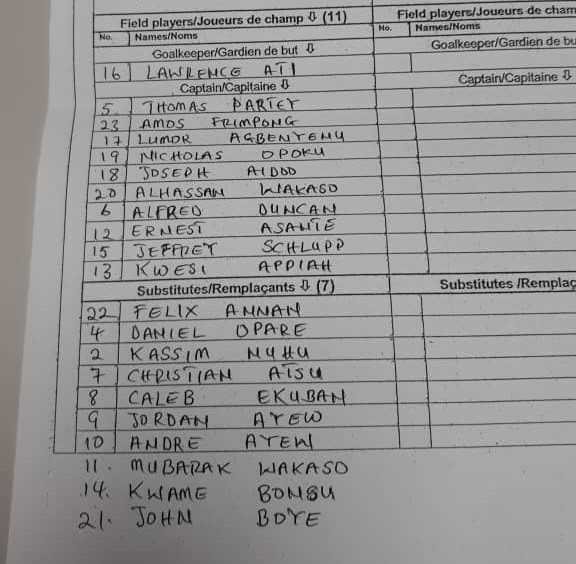 Field players/Joueurs de champ ⇩ (11) Field players/Joueurs de cham
No. Names/Noms No. Names/Noms
Goalkeeper/Gardien de but ⇩ Goalkeeper/Gardien de bu
16 LAWRENCE ATI
Captain/Capitaine ⇩ Captain/Capitaine ⇩
5 THOMAS PARTEY
23 AMOS FRIMPONG
17 LUMOR AGBENYENU
19 NICHOLAS OPOKU
18 JOSEPH AIDOO
20 ALHASSAN WAKASO
6 ALFRED DUNCAN
12 ERNEST ASANTE
15 JEFFREY SCHLUPP
13 KWESI APPIAH
Substitutes/Remplaçants ⇩ (7) Substitutes /Remplaç
22 FELIX ANNAN
4 DANIEL OPARE
2 KASSIM NUHU
7 CHRISTIAN ATSU
8 CALEB EKUBAN
9 JORDAN AYEW
10 ANDRE AYEW
11. MUBARAK WAKASO
14. KWAME BONSU
21. JOHN BOYE